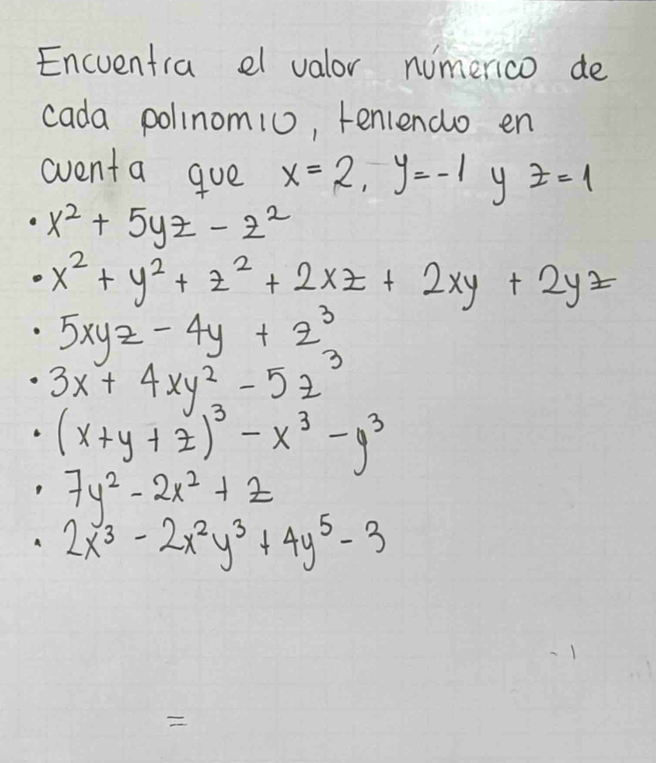 Encuentra el valor númerico de
cada polinomio, teniendo en
cuenta que x = 2, y = -1 y z = 1
• x² + 5yz - z²
• x² + y² + z² + 2xz + 2xy + 2yz
• 5xyz - 4y + z³
• 3x + 4xy² - 5z³
• (x+y+z)³ - x³ - y³
• 7y² - 2x² + z
• 2x³ - 2x²y³ + 4y⁵ - 3
=